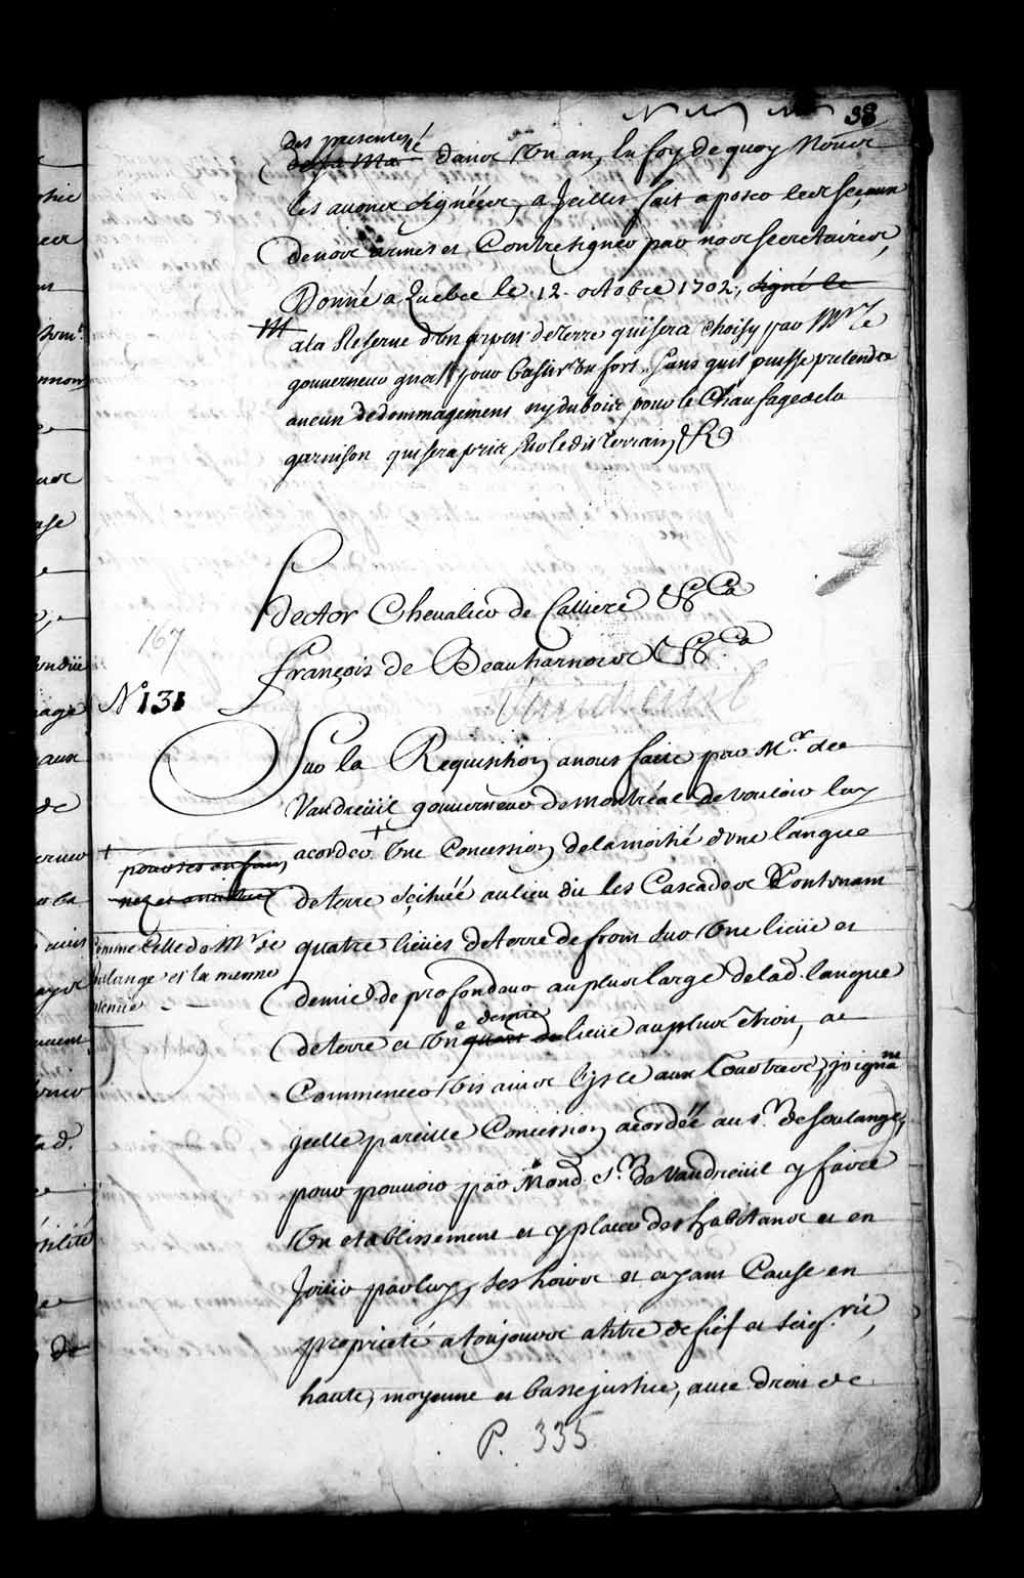 38
des presentes
de sa Ma.té dans Un an, En foy de quoy Nous
les avons Signéés, a Jcelles fait aposer les sceaux
de nos armes et Contresigner par nos secretaires,
Donné a Quebec le 12. octobre 1702, signé le
M
ala Reserve d'un arpent de terre qui sera choisy par Mr. le
gouverneur gnãl pour bastir Un fort, Sans quil puisse pretendre
aucun dedommagement ny du bois pour le Chaufage de la
garnison qui sera pris sur le dit terrain, &c
Hector Chevalier de Calliere &c.a
167
François de Beauharnois &c.a
Vaudreuil
No. 131
Sur la Requisition a nous faite par Mr. de
Vaudreüil gouverneur de montréal de vouloir luy
acorder + Une Concession de la moitié d'une langue
+ pour ses enfans
nez et a naitre
de terre scituéé au lieu dit les Cascades Contenant
Comme Celle de Mr. de
quatre lieües de terre de front sur Une lieüe et
Soulange et la meme
demie de profondeur au plus large de lad. langue
tenüe
demie
de terre et Une quart de lieüe au plus étroit, a
Commencer Vis avis l'isle aux Tourtres, joignant
jcelle pareille Concession acordéé au sr. de soulange,
pour pouvoir par Mond. Sr. de Vaudreüil y faire
Un etablissement et y placer des habitans et en
Joüir par luy, ses hoirs et ayant Cause en
proprieté a toujours a titre de fief et seig.rie,
haute, moyenne et basse justice, avec droit de
P. 335